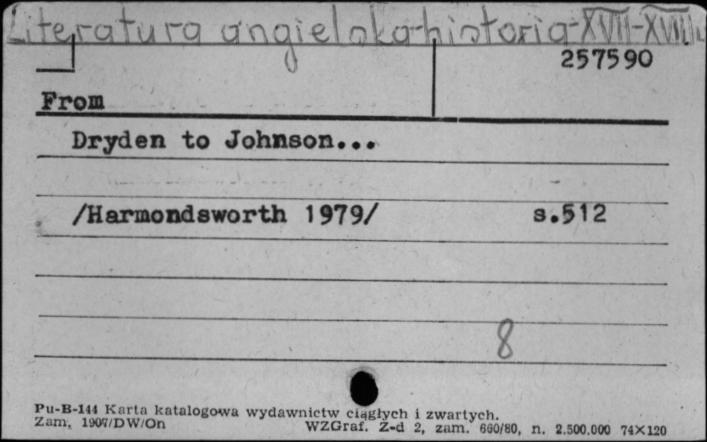 Literatura angielska-historia-XVII-XVIII w
257590
From
Dryden to Johnson...
/Harmondsworth 1979/ s.512
8
Pu-B-144 Karta katalogowa wydawnictw ciągłych i zwartych.
Zam, 1907/DW/On WZGraf. Z-d 2, zam. 660/80, n. 2.500.000 74×120